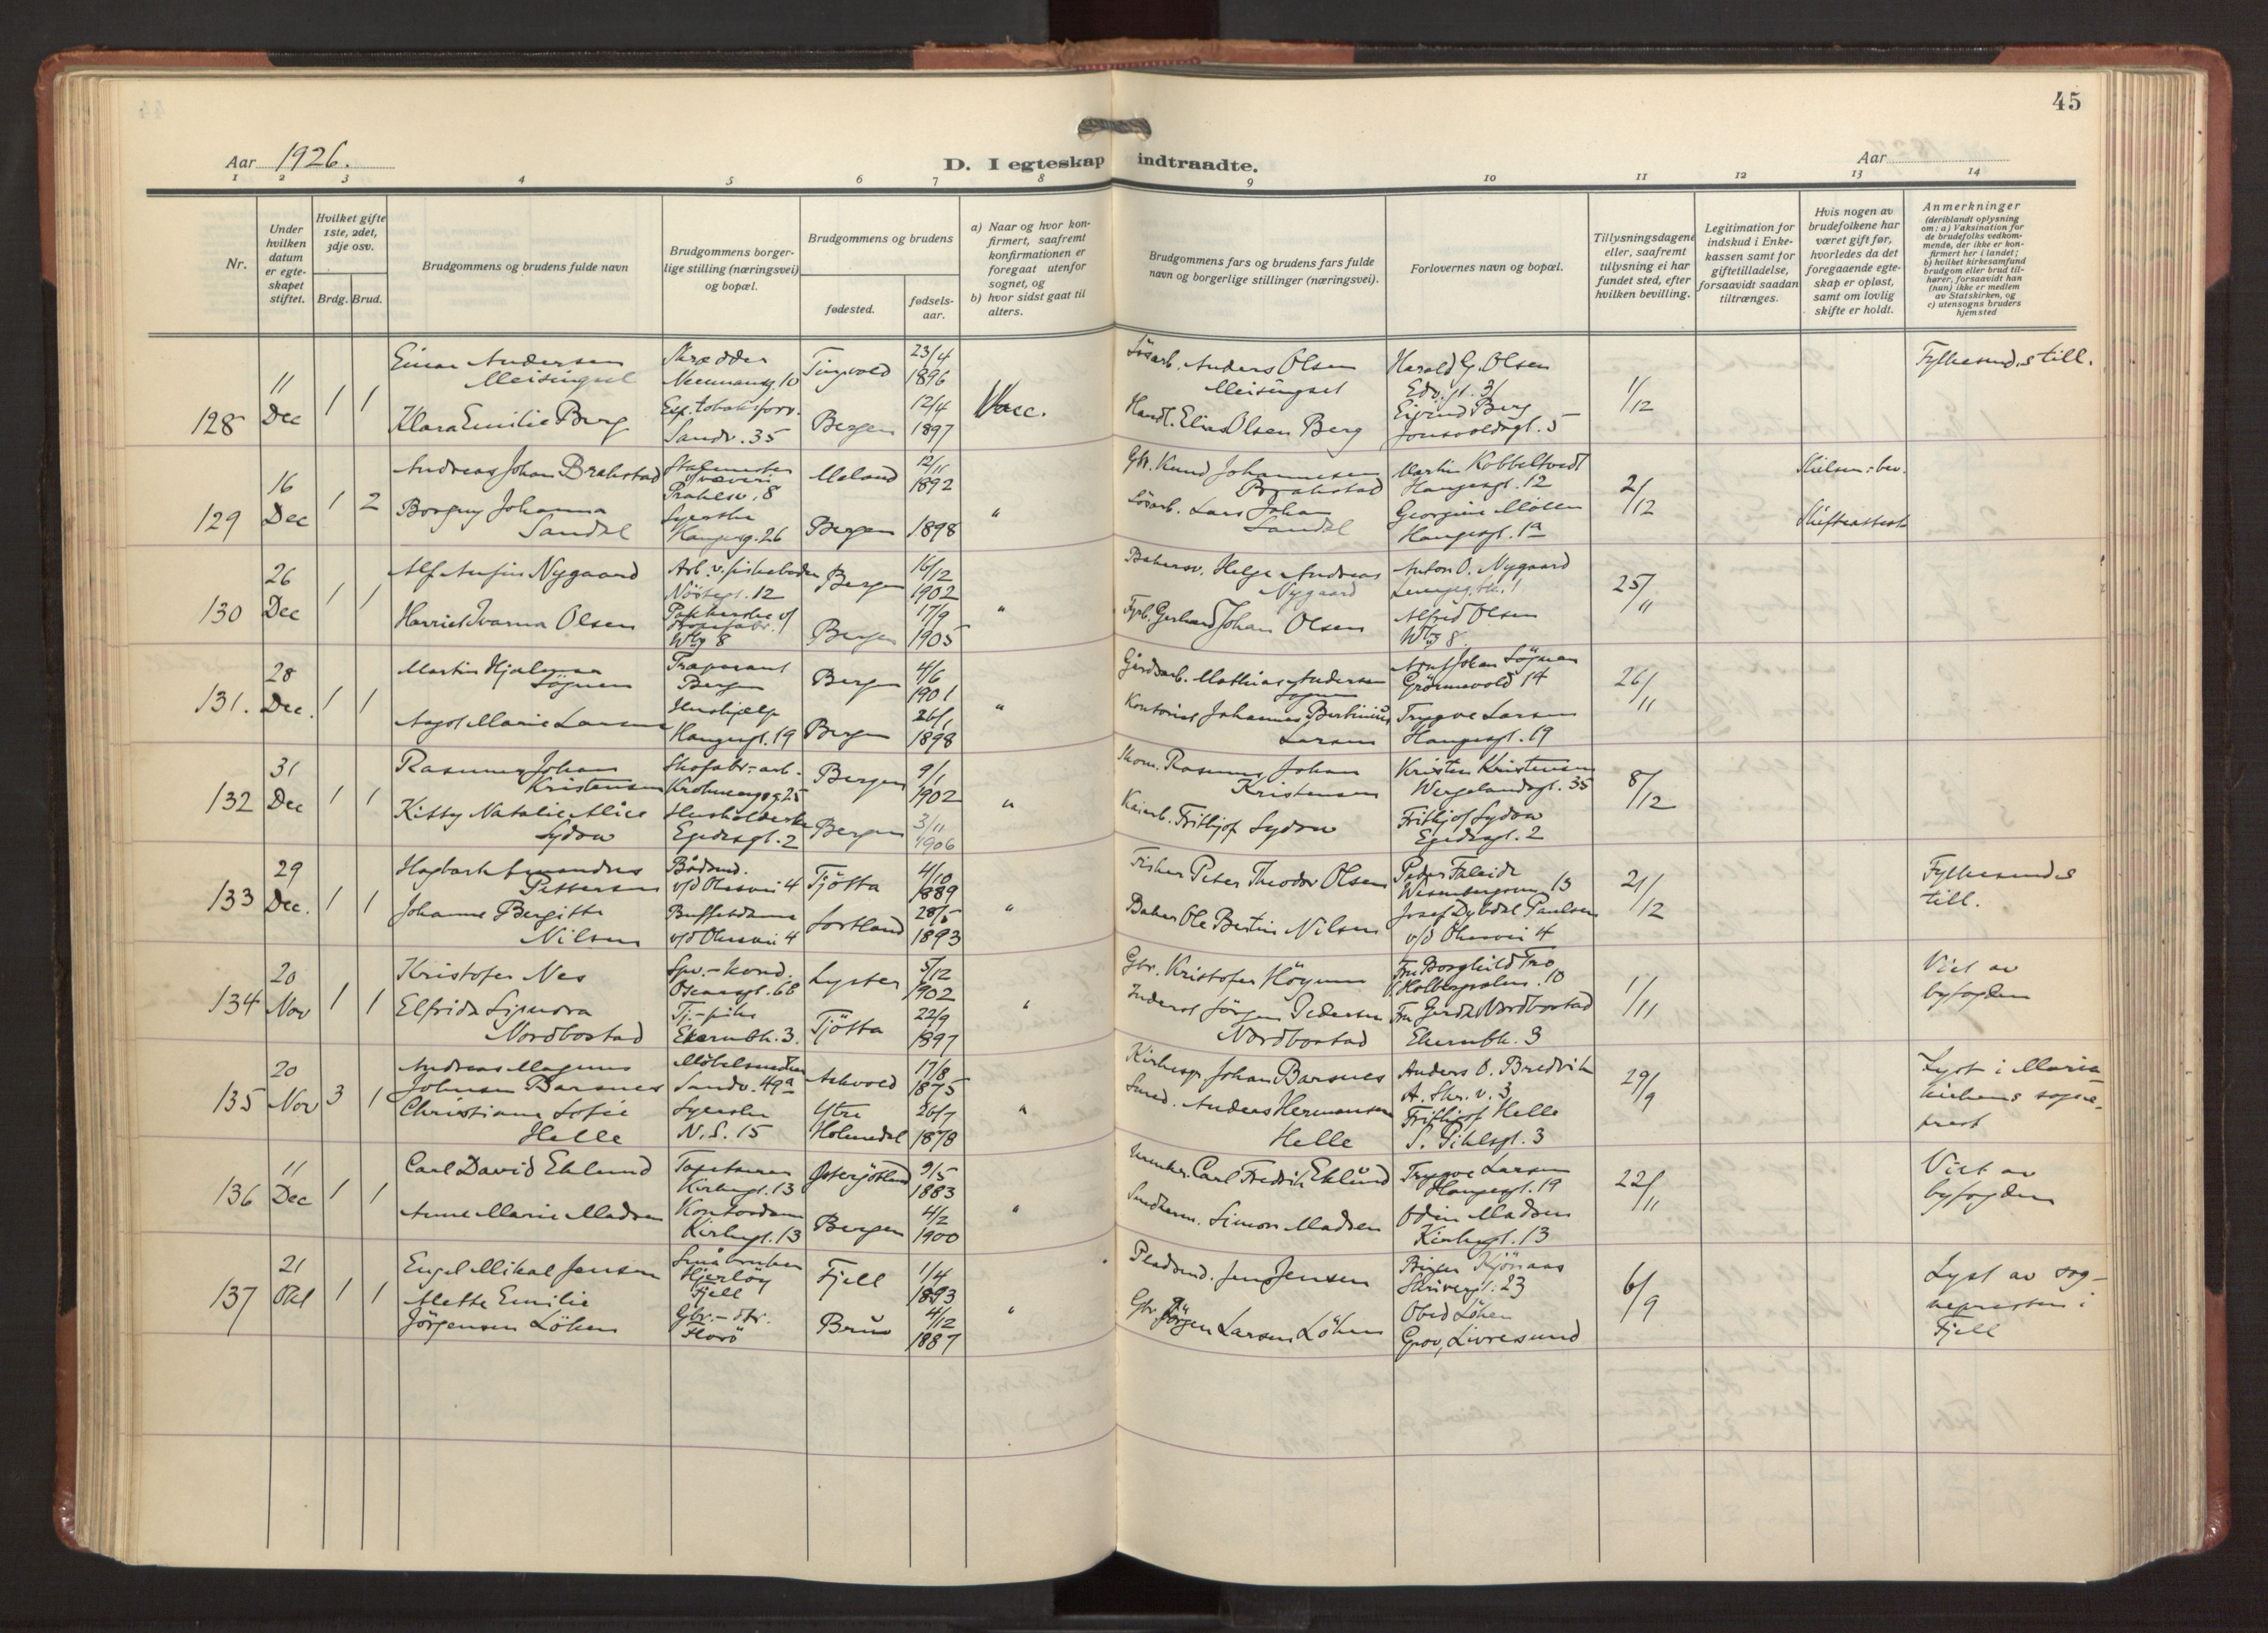 45
Aar 1926.
D. I egteskap indtraadte.
Aar
1 2 3 4 5 6 7 8 9 10 11 12 13 14
Nr.
Under hvilken datum er egteskapet stiftet.
Hvilket gifte 1ste, 2det, 3dje osv.
Brdg. Brud.
Brudgommens og brudens fulde navn
Brudgommens borgerlige stilling (næringsvei) og bopæl.
Brudgommens og brudens
fødested.
fødselsaar.
a) Naar og hvor konfirmert, saafremt konfirmationen er foregaat utenfor sognet, og
b) hvor sidst gaat til alters.
Brudgommens fars og brudens fars fulde navn og borgerlige stillinger (næringsvei).
Forlovernes navn og bopæl.
Tillysningsdagene eller, saafremt tillysning ei har fundet sted, efter hvilken bevilling.
Legitimation for indskud i Enkekassen samt for giftetilladelse, forsaavidt saadan tiltrænges.
Hvis nogen av brudefolkene har været gift før, hvorledes da det foregaaende egteskap er opløst, samt om lovlig skifte er holdt.
Anmerkninger
(deriblandt oplysning om: a) Vaksination for de brudefolks vedkommende, der ikke er konfirmert her i landet; b) hvilket kirkesamfund brudgom eller brud tilhører, forsaavidt han (hun) ikke er medlem av Statskirken, og c) utensogns bruders hjemsted
128 11 Dec 1 1
Einar Andersen Meisingset
Skrædder Neumannsg. 10
Tingvold 23/4 1896
Anders Olsen Meisingset
Harald G. Olsen
1/12
Fylkesmd.s till.
Klara Emilie Berg
Sandv. 35
Bergen 12/4 1897
Vacc.
Handl. Elias Olsen Berg
Eivind Berg
129 16 Dec 1 2
Andreas Johan Brakstad
Meland 12/11 1892
Gbr. Knud Johannesen Brakstad
Martin Kobbeltvedt Haugesgt. 12
2/12
Skilsm: bev.
Borgny Johanna Sandal
Syerske Haugesg. 26
Bergen 1898
"
Lars Johan Sandal
Georgine Haugesgt. 1a
Skifteattest
130 26 Dec 1 1
Alf Nygaard
Nöstegt. 12
Bergen 16/12 1902
Helge Andreas Nygaard
Anton O. Nygaard
25/11
Harriet Ivarna Olsen
Wbg 8
Bergen 17/9 1905
"
Gerhard Johan Olsen
Alfred Olsen
Wbg 8.
131. 28 Dec. 1 1
Martin Hjalmar Sögnen
Bergen
Bergen 4/6 1901
Gårdsarb. Mathias Andersen
Johan Sögnen
14
26/11
Aagot Marie Larsen
Hushjælp Haugesgt. 19
Bergen 26/1 1898
"
Kontorist Johannes Bertinius Larsen
Trygve Larsen Haugesgt. 19
132 31 Dec 1 1
Rasmus Johan Kristensen
Skofabr.-arb. Krohnengsg 25
Bergen 9/1 1902
Skom. Rasmus Johan Kristensen
Kristen Kristensen Wergelandsgt. 35
8/12
Kitty Natalie Alice Sydow
Husholderske Egedesgt. 2
Bergen 3/11 1906
"
Kaiarb. Frithjof Sydow
Frithjof Sydow Egedesgt. 2
133 29 Dec. 1 1
Hagbart Amandus Pettersen
4
Tjötta 4/10 1889
Fisker Peter Theodor Olsen
Peder Faleide 13
21/12
Fylkesmandens till.
Johanne Bergitte Nilsen
Buffetdame 4
Sortland 28/5 1893
"
Baker Ole Bertin Nilsen
Josef Dybdal Paulsen 4
134 20 Nov 1 1
Kristofer Nes
Spv.-kond. 68
Lyster 5/12 1902
Gbr. Kristofer Höyum
Fru Borghild Tro
Holbergsalm. 10
1/11
Viet av byfogden
Elfrida Sigurda Nordbostad
Tj.-pike 3.
Tjötta 22/9 1897
"
Jörgen Pedersen Nordbostad
Fru Gerda Nordbostad
3
135 20 Nov 3 1
Andreas Magnus Johnsen Barsnes
Möbelsnedker Sandv. 49a
Askvold 17/8 1875
Johan Barsnes
Anders O. Bredvik
A. Skr. v. 3
29/9
Lyst i Mariakirkens sogneprest
Christiane Sofie Helle
Syerske N.S. 15
Ytre Holmedal 26/7 1878
"
Smed. Anders Hermansen Helle
Frithjof Helle
S. Pihlsgt. 3
136 11 Dec 1 1
Carl David Eklund
Tapetserer Kirkegt. 13
Östergötland 9/5 1883
Carl Fredrik Eklund
Trygve Larsen Haugesgt. 19
22/11
Viet av byfogden
Anne Marie Madsen
Kontordame Kirkegt. 13
Bergen 4/2 1900
"
Simon Madsen
Odin Madsen Kirkegt. 13
137 21 Okt 1 1
Engel Mikal Jensen
Småbruker Fjell
Fjell 1/4 1893
Jens Jensen
Birger
Skivegt. 23
6/9
Lyst av sognepresten i Fjell
Mette Emilie Jörgensen Löken
Gbr.-dtr. Florö
Bru 4/12 1887
"
Gbr Jörgen Larsen Löken
Obed Löken
Grov, Livresund